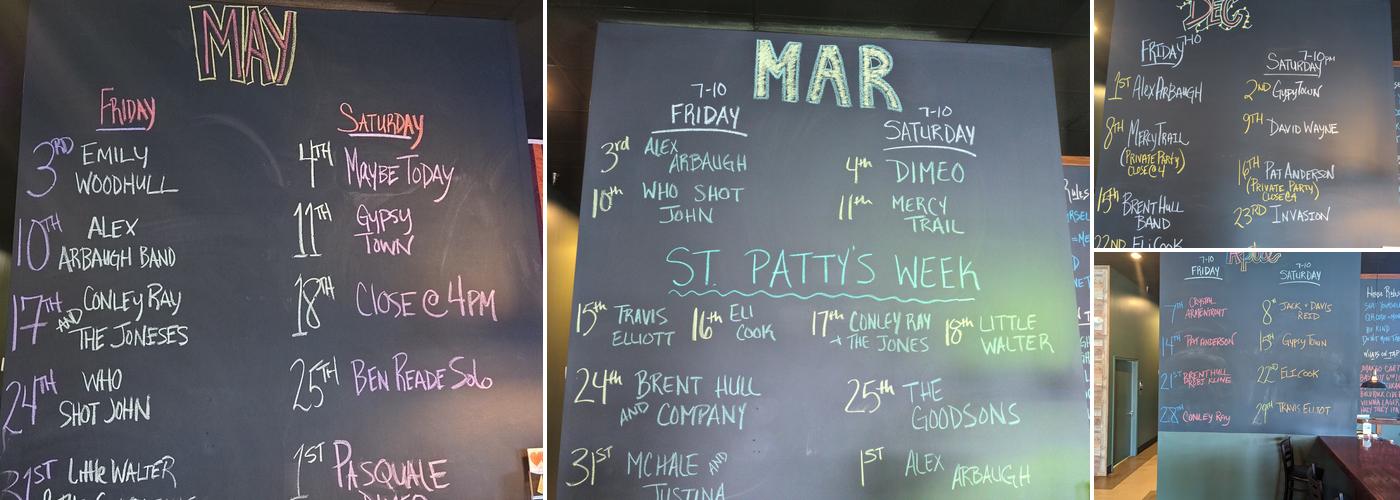 MAY
FRIDAY
SATURDAY
3RD EMILY
WOODHULL
4TH MAYBE TODAY
10TH ALEX
ARBAUGH BAND
11TH GYPSY
TOWN
17TH CONLEY RAY
AND THE JONESES
18TH CLOSE @ 4PM
24TH WHO
SHOT JOHN
25TH BEN READE SOLO
31ST LITTLE WALTER
1ST PASQUALE
MAR
7-10
FRIDAY
7-10
SATURDAY
3rd ALEX
ARBAUGH
4th DIMEO
10th WHO SHOT
JOHN
11th MERCY
TRAIL
ST. PATTY'S WEEK
15th TRAVIS
ELLIOTT
16th ELI
COOK
17th CONLEY RAY
+ THE JONES
18th LITTLE
WALTER
24th BRENT HULL
AND COMPANY
25th THE
GOODSONS
31ST MCHALE AND
JUSTINA
1ST ALEX ARBAUGH
DEC
FRIDAY 7-10
7-10PM
SATURDAY
1ST ALEX ARBAUGH
2ND GYPSYTOWN
8TH MERCY TRAIL
(PRIVATE PARTY)
CLOSE @ 4
9TH DAVID WAYNE
15TH BRENT HULL
BAND
16TH PAT ANDERSON
(PRIVATE PARTY)
CLOSE @ 4
22ND ELI COOK
23RD INVASION
7-10
FRIDAY
7-10
SATURDAY
7TH CRYSTAL
ARMENTROUT
8th JACK + DAVIS
REID
14TH PAT ANDERSON
15TH GYPSY TOWN
21ST BRENT HULL
22ND ELI COOK
28TH CONLEY RAY
29TH TRAVIS ELLIOT